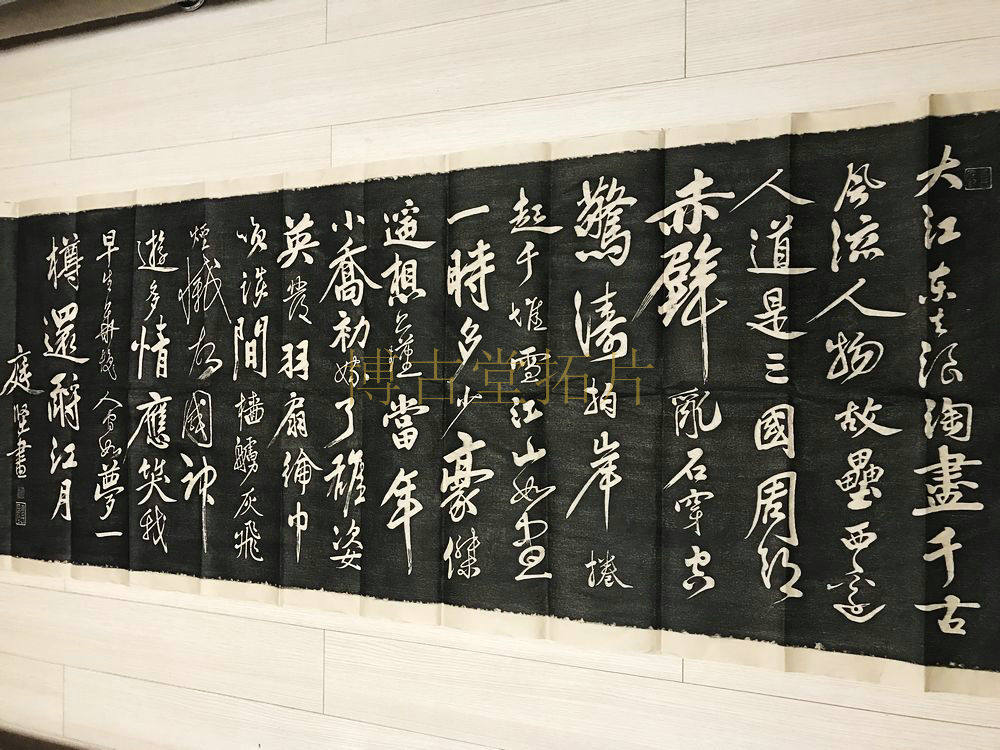 大江東去浪淘盡千古
風流人物故壘西邊
人道是三國周郎
赤壁亂石穿空
驚濤拍岸捲
起千堆雪江山如畫
一時多少豪傑
遙想公瑾當年
小喬初嫁了雄姿
英發羽扇綸巾
笑談間檣艣灰飛
煙滅故國神
遊多情應笑我
早生華髮人間如夢一
樽還酹江月
庭堅書
博古堂拓片